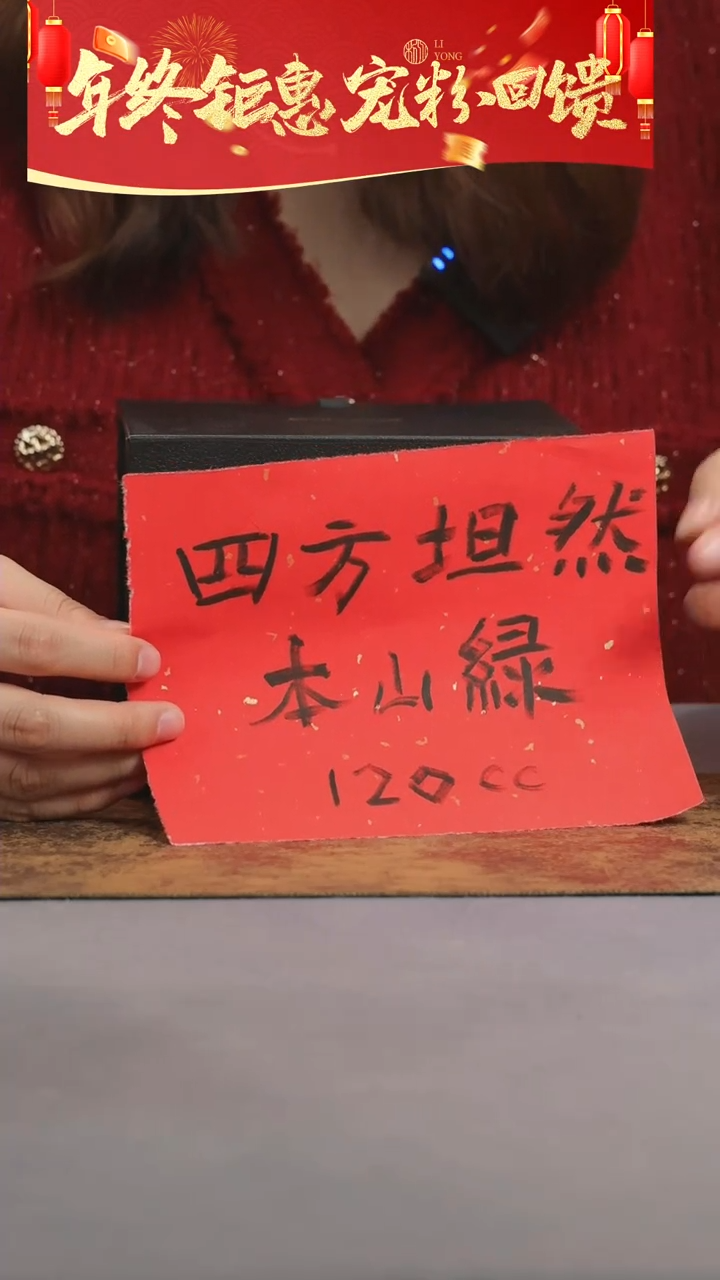 年终钜惠 宠粉回馈
LI
YONG
四方坦然
本山緑
120cc